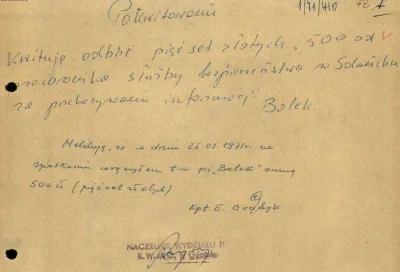 Pokwitowanie
1/71/410 72 7
Kwituję odbiór pięćset złotych, 500 od
pracownika służby bezpieczeństwa w Gdańsku
za przekazywanie informacji Bolek.
Melduję, że w dniu 25.01 1971r. na
spotkaniu wręczyłem t.w. ps. „Bolek" sumę
500 zł (pięćset złotych)
Kpt. E.
NACZELNIK WYDZIAŁU III
K.W. M.O. w Gdańsku